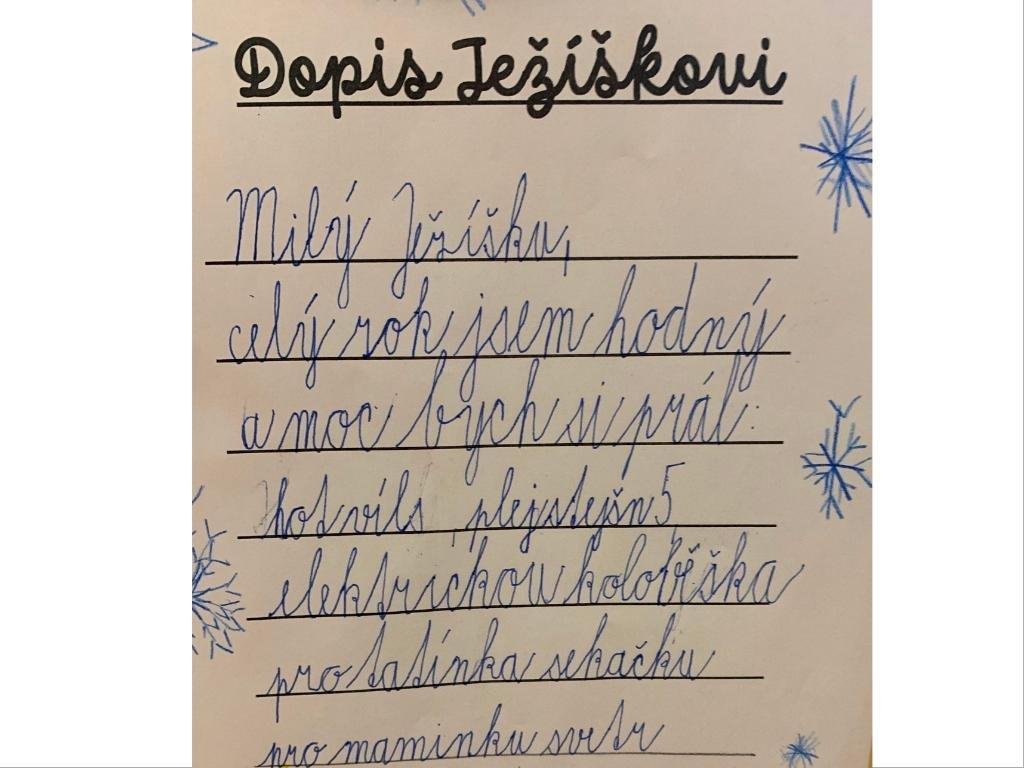 Dopis Ježíškovi
Milý Ježíšku,
celý rok jsem hodný
a moc bych si prál:
hotvíls, plejstejšn 5,
elektrickou koloběška
pro tatínka sekačku
pro maminku svetr